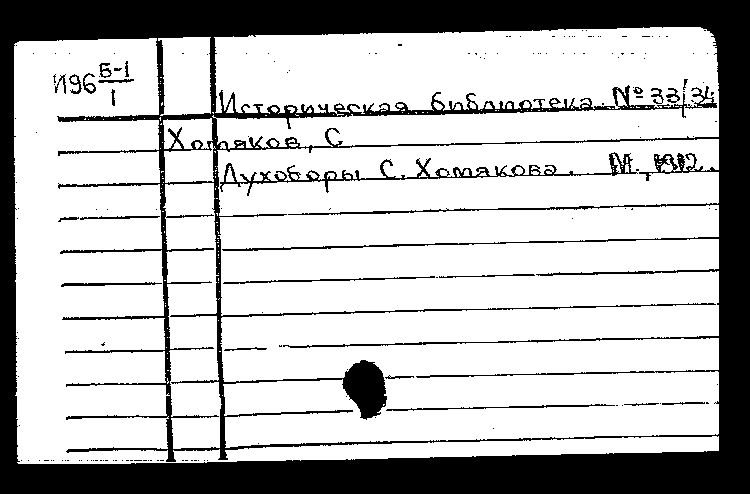 И96 Б-1/1
Историческая библиотека № 33/34
Хомяков, С
Духоборы С. Хомякова. М., 1912.